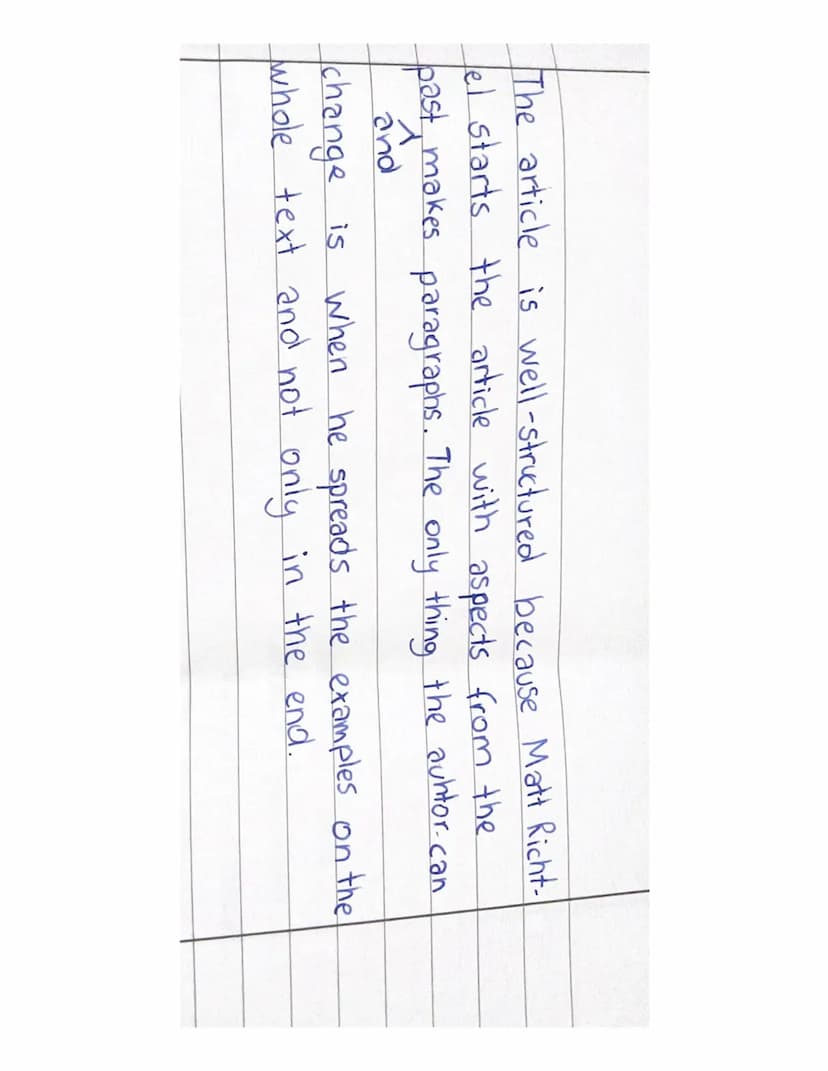 The article is well-structured because Matt Richt-
el starts the article with aspects from the
past makes paragraphs. The only thing the auhtor can
^ and
change is when he spreads the examples on the
whole text and not only in the end.